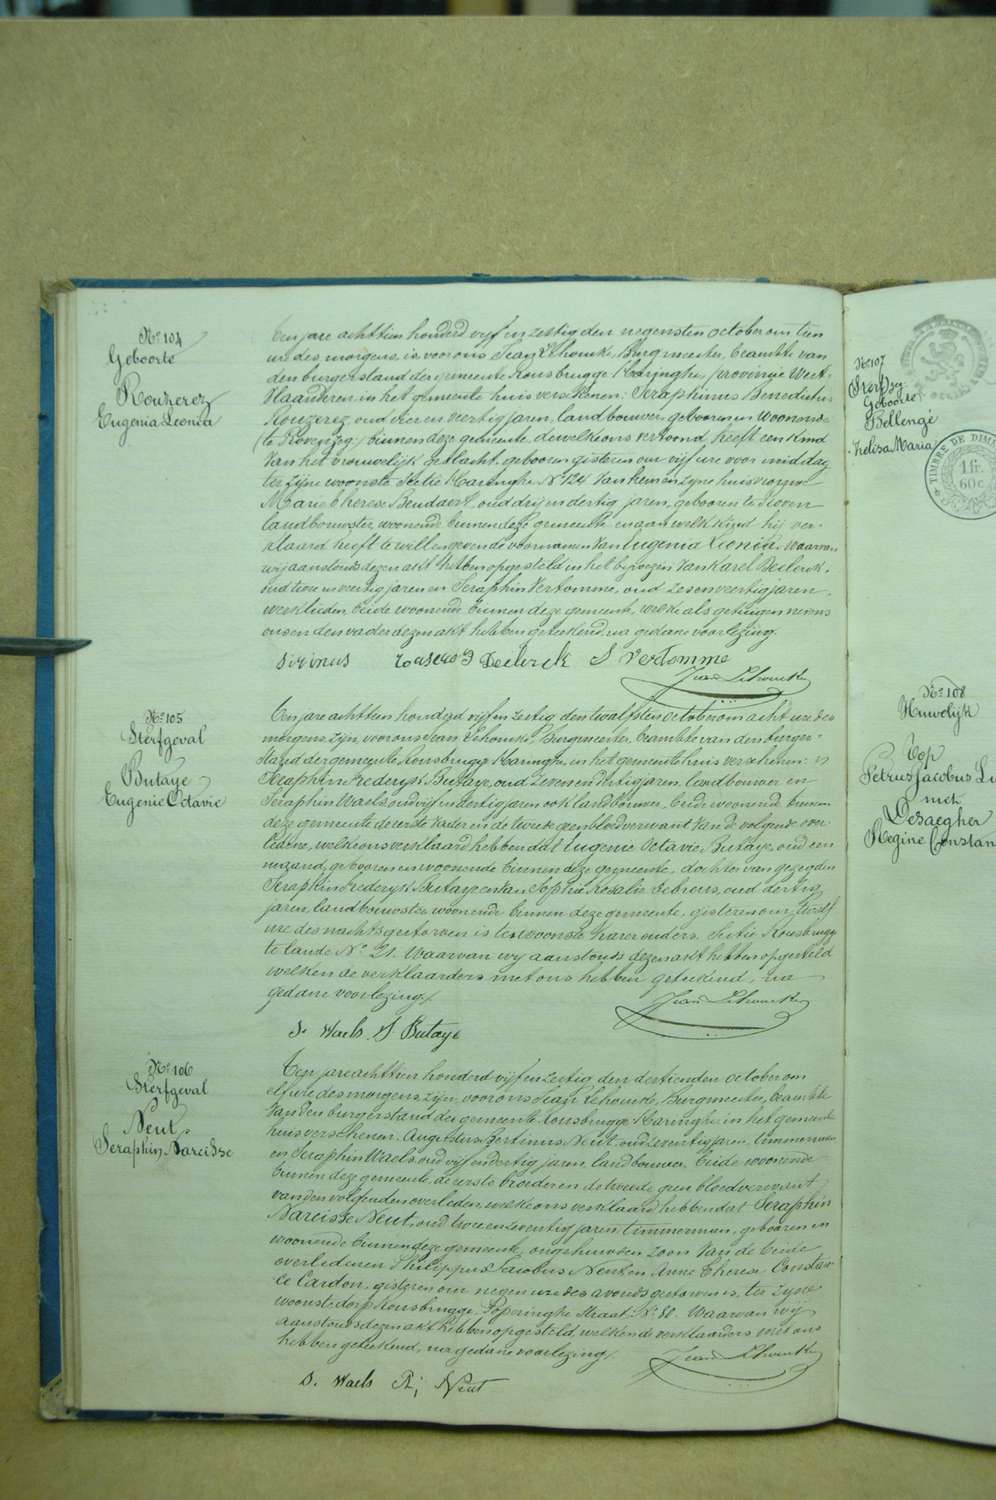 No 104
Geboorte
Rouzerez
Eugenia Leonia
Een jare achttien honderd vyf en zestig den negensten October om tien
ure des morgens, is voor ons Jean Lehoucke, Burgmeester, beambte van
den burgerstand der gemeente Rousbrugge-Haringhe, provincie West-
Vlaanderen, in het gemeente huis verschenen: Seraphinus Benedictus
Rouzerez, oud vier en veertig jaren, landbouwer, geboren en woonende
binnen deze gemeente, dewelke ons vertoond heeft een kind
van het vrouwelijk geslacht, geboren gisteren om vijf ure voor middag
ter zijne woonste Sectie Haringhe No 124 van hem en zyne huisvrouw
Marie Therese Bendaert, oud drij en dertig jaren, geboren te
landbouwster, woonende binnen deze gemeente, en aan welk kind hij ver-
klaard heeft te willen geven de voornamen van Eugenia Leonia. Waarvan
wij aanstonds dezen akt hebben opgesteld in het bijwezen van Karel Declerck,
oud twee en veertig jaren en Seraphin Vertomme, oud zes en veertig jaren,
werklieden, beide woonende binnen deze gemeente, welke als getuigen nevens
ons en den vader dezen akt hebben geteekend, na gedane voorlezing.
Declerck S Vertomme
Jean Lehoucke
No 105
Sterfgeval
Butaye
Eugenie Octavie
Een jare achttien honderd vijf en zestig den twalfsten October om acht ure des
morgens, zijn voor ons Jean Lehoucke, Burgmeester, beambte van den burger-
stand der gemeente Rousbrugge-Haringhe, in het gemeente huis verschenen:
Seraphin Frederyk Butaye, oud zeven en dertig jaren, landbouwer en
Seraphin Waels, oud vijf en dertig jaren ook landbouwer, beide woonende binnen
deze gemeente, de eerste vader en de tweede geen bloedverwant van de volgende over-
ledene, welke ons verklaard hebben dat Eugenie Octavie Butaye, oud een
maand, geboren en woonende binnen deze gemeente, dochter van gezegden
Seraphin Frederyk Butaye en van Sophie Rosalie oud dertig
jaren, landbouwster, woonende binnen deze gemeente, gisteren om twelf
ure des nachts gestorven is ter woonste harer ouders, Sectie Rousbrugge
te lande No 21. Waarvan wij aanstonds dezen akt hebben opgesteld
welken de verklaarders met ons hebben geteekend, na
gedane voorlezing.
Jean Lehoucke
S. Waels S Butaye
No 106
Sterfgeval
Neut
Seraphin Narcisse
Een jare achttien honderd vijf en zestig den dertienden October om
elf ure des morgens, zijn voor ons Jean Lehoucke, Burgmeester, beambte
van den burgerstand der gemeente Rousbrugge-Haringhe, in het gemeente
huis verschenen: Augustus Bertinus Neut, oud zeventig jaren, timmerman
en Seraphin Waels, oud vijf en dertig jaren, landbouwer, beide woonende
binnen deze gemeente, de eerste broeder en de tweede geen bloedverwant
van den volgenden overleden, welke ons verklaard hebben dat Seraphin
Narcisse Neut, oud twee en zeventig jaren, timmerman, geboren en
woonende binnen deze gemeente, ongehuwden zoon van de beide
overledenen Philippus Jacobus Neut en Anne Therese Constan-
ce Cardon, gisteren om negen ure des avonds gestorven is, ter zyne
woonste dorp Rousbrugge, Poperinghe Straat, No Waarvan wij
aanstonds dezen akt hebben opgesteld, welken de verklaarders met ons
hebben geteekend, na gedane voorlezing.
Jean Lehoucke
S. Waels Neut
No 107
Geboorte
Bellengé
Zelisa Maria
TIMBRE DE DIM
1 fr.
60 c.
No 108
Huwelijk
Top
Petrus Jacobus
met
Desaegher
Regine Constan